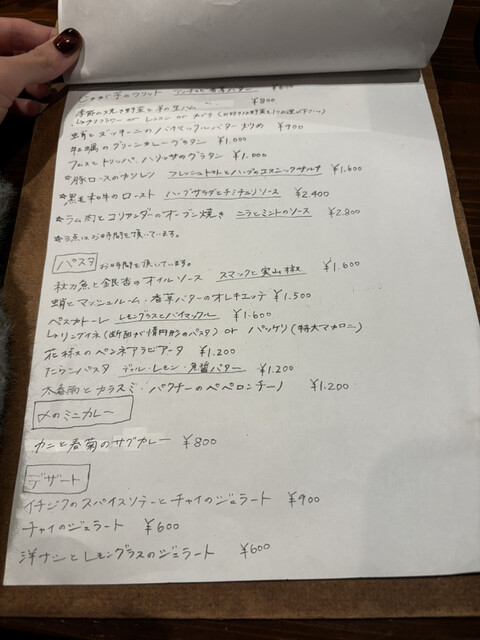 じゃが芋のフリット
季節の焼き野菜と 羊の生ハム ¥800
蛸とズッキーニのバイマックルバター炒め ¥900
牡蠣のグリーンカレーグラタン ¥1.000
フムスとトリッパ、ハリッサのグラタン ¥1.000
*豚ロースのカツレツ フレッシュトマトとハーブのエスニックサルサ ¥1.600
*黒毛和牛のロースト ハーブサラダとチミチュリソース ¥2.400
*ラム肉とコリアンダーのオーブン焼き ニラとミントのソース ¥2.800
*3点はお時間を頂いています。
パスタ お時間を頂いています。
秋刀魚と銀杏のオイルソース スマックと実山椒 ¥1.600
蛸とマッシュルーム・香草バターのオレキエッテ ¥1.500
ペスカトーレ レモングラスとバイマックル ¥1.600
リングイネ(断面が楕円形のパスタ) or パッケリ(特大マカロニ)
花椒のペンネアラビアータ ¥1.200
たらこパスタ ディル・レモン・発酵バター ¥1.200
木春雨とカラスミ・パクチーのペペロンチーノ ¥1.200
〆のミニカレー
カニと春菊のサグカレー ¥800
デザート
イチジクのスパイスソテーとチャイのジェラート ¥900
チャイのジェラート ¥600
洋ナシとレモングラスのジェラート ¥600